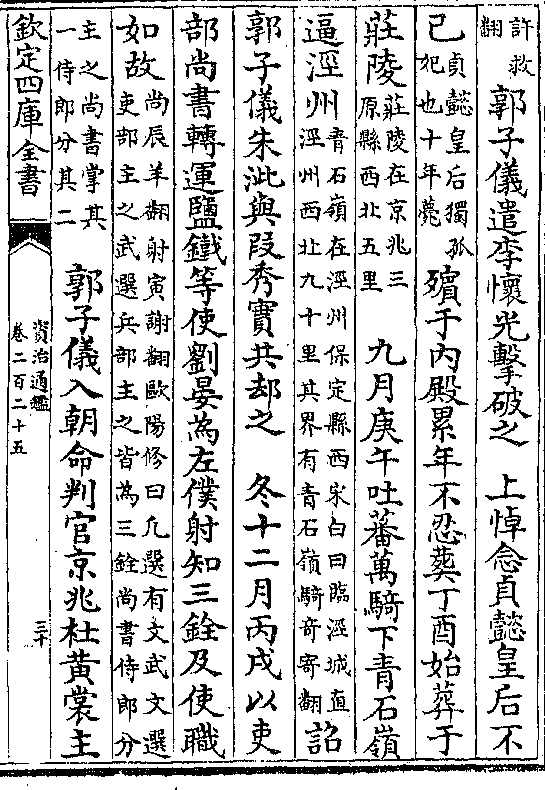 許救翻 郭子儀遣李懷光擊破之 上悼念貞懿皇后不
已貞懿皇后獨孤妃也十年薨 殯于内殿累年不忍葬丁酉始葬于
莊陵莊陵在京兆三原縣西北五里 九月庚午吐蕃萬騎下青石嶺
逼涇州青石嶺在涇州保定縣西宋白曰臨涇城直涇州西北九十里其界有青石嶺騎奇寄翻 詔
郭子儀朱泚與段秀實共却之 冬十二月丙戌以吏
部尚書轉運鹽鐵等使劉晏為左僕射知三銓及使職
如故尚辰羊翻射寅謝翻歐陽修曰凡選有文武文選吏部主之武選兵部主之皆為三銓尚書侍郎分
主之尚書掌其一侍郎分其二 郭子儀入朝命判官京兆杜黄裳主
欽定四庫全書
資治通鑑
卷二百二十五
三十